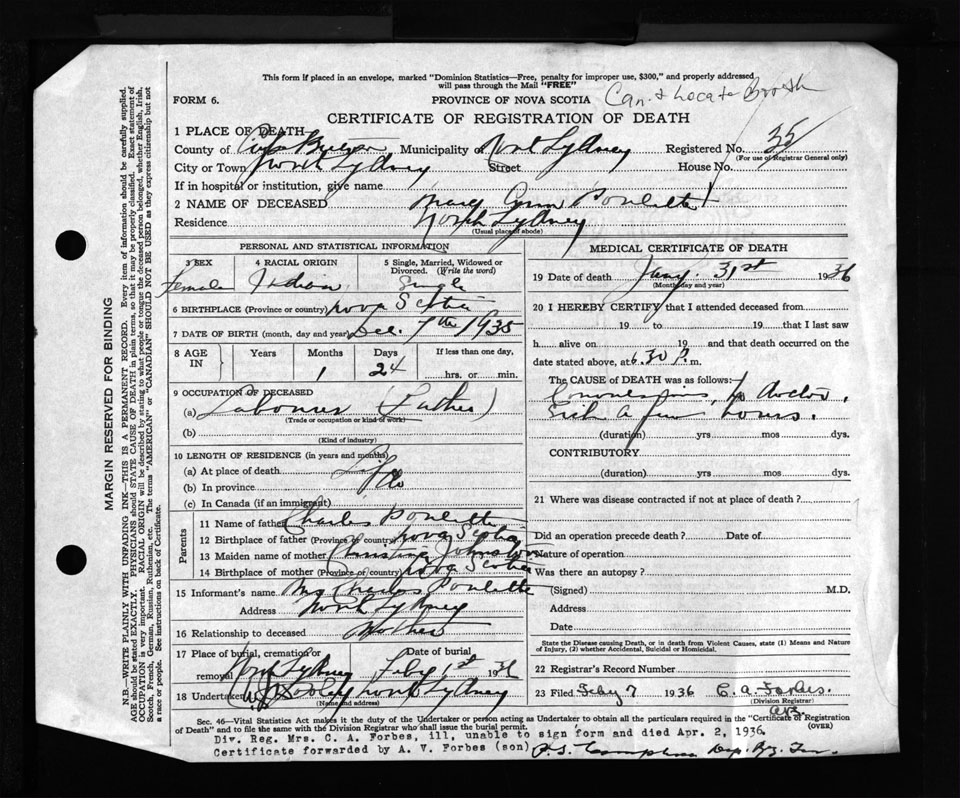 This form if placed in an envelope, marked "Dominion Statistics—Free, penalty for improper use, $300," and properly addressed
will pass through the Mail "FREE"
FORM 6.
PROVINCE OF NOVA SCOTIA
Can't Locate Booth
CERTIFICATE OF REGISTRATION OF DEATH
1 PLACE OF DEATH
County of Cape Breton Municipality of North Sydney Registered No. 35
(For use of Registrar General only)
City or Town North Sydney Street House No.
If in hospital or institution, give name
2 NAME OF DECEASED Mary Ann Poulette
Residence North Sydney
(Usual place of abode)
PERSONAL AND STATISTICAL INFORMATION
3 SEX 4 RACIAL ORIGIN 5 Single, Married, Widowed or Divorced. (Write the word)
Female Indian Single
6 BIRTHPLACE (Province or country) Nova Scotia
7 DATE OF BIRTH (month, day and year) Dec. 7th 1935
8 AGE IN Years Months Days If less than one day,
1 24 hrs. or min.
9 OCCUPATION OF DECEASED
(a) Labourer (Father)
(Trade or occupation or kind of work)
(b)
(Kind of industry)
10 LENGTH OF RESIDENCE (in years and months)
(a) At place of death Life
(b) In province
(c) In Canada (if an immigrant)
Parents
11 Name of father Charles Poulette
12 Birthplace of father (Province or country) Nova Scotia
13 Maiden name of mother Christina Johnston
14 Birthplace of mother (Province or country) Nova Scotia
15 Informant's name Mrs Charles Poulette
Address North Sydney
16 Relationship to deceased Mother
17 Place of burial, cremation or removal Date of burial
North Sydney Feby 1st 1936
18 Undertaker North Sydney
(Name and address)
MEDICAL CERTIFICATE OF DEATH
19 Date of death Jany. 31st 1936
(Month, day and year)
20 I HEREBY CERTIFY that I attended deceased from
19 to 19 that I last saw
h alive on 19 and that death occurred on the
date stated above, at 6.30 P. m.
The CAUSE of DEATH was as follows:
Convulsions, no doctor,
Sick a few hours.
(duration) yrs mos dys.
CONTRIBUTORY
(duration) yrs mos dys.
21 Where was disease contracted if not at place of death?
Did an operation precede death? Date of
Nature of operation
Was there an autopsy?
(Signed) M.D.
Address
Date
State the Disease causing Death, or in death from Violent Causes, state (1) Means and Nature of Injury, (2) whether Accidental, Suicidal or Homicidal.
22 Registrar's Record Number
23 Filed Feby 7 1936 C. A. Forbes.
(Division Registrar)
(OVER)
Sec. 46—Vital Statistics Act makes it the duty of the Undertaker or person acting as Undertaker to obtain all the particulars required in the "Certificate of Registration
of Death" and to file the same with the Division Registrar who shall issue the burial permit.
Div. Reg. Mrs. C. A. Forbes, ill, unable to sign form and died Apr. 2, 1936.
Certificate forwarded by A. V. Forbes (son)
MARGIN RESERVED FOR BINDING
N.B.—WRITE PLAINLY WITH UNFADING INK—THIS IS A PERMANENT RECORD. Every item of information should be carefully supplied.
AGE should be stated EXACTLY. PHYSICIANS should STATE CAUSE OF DEATH in plain terms, so that it may be properly classified. Exact statement of
OCCUPATION is very important. RACIAL ORIGIN will be described by stating to what people or tongue the deceased person belonged, whether English, Irish,
Scotch, French, German, Russian, Ruthenian, etc. The terms "AMERICAN" or "CANADIAN" SHOULD NOT BE USED as they express citizenship but not
a race or people. See instructions on back of Certificate.